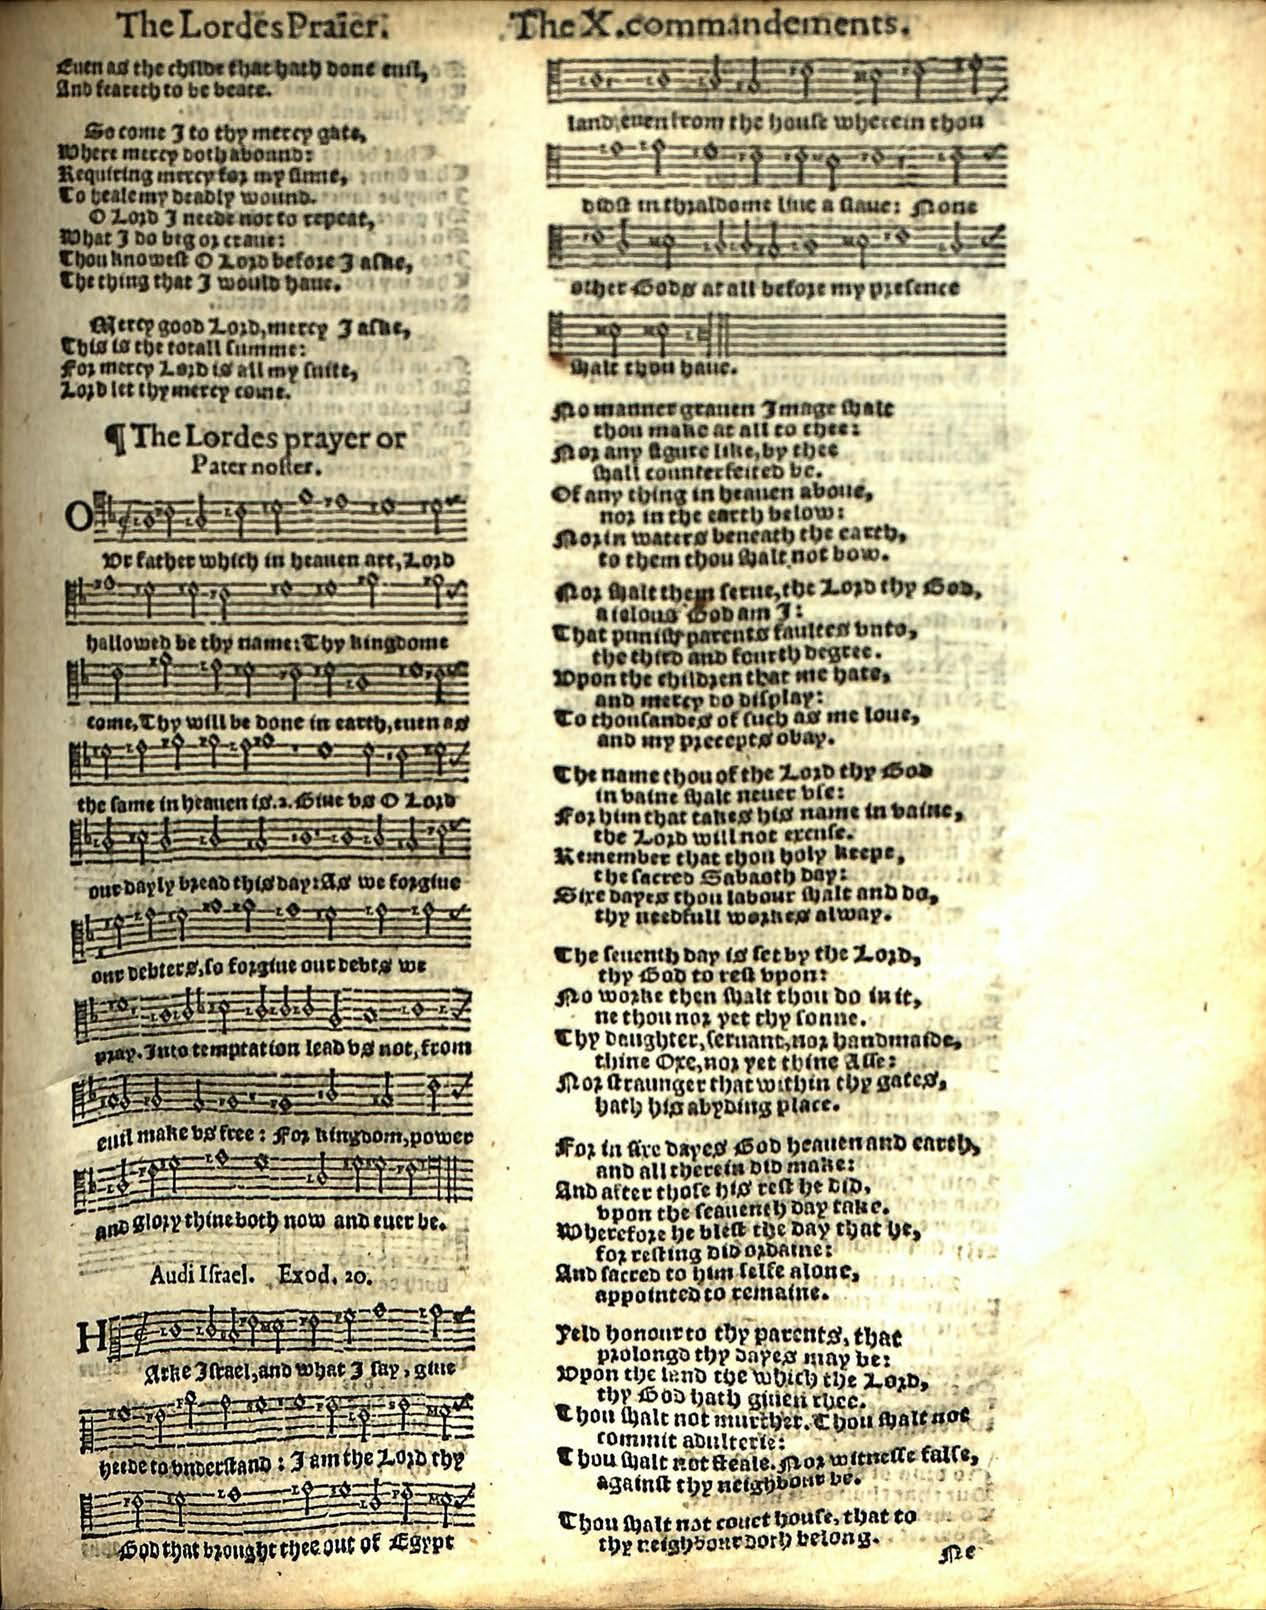 The Lordes Praier.
Euen as the childe that hath done euil,
And feareth to be beate.
So come I to thy mercy gate,
Where mercy doth abound:
Requiring mercy for my sinne,
To heale my deadly wound.
O Lord I neede not to repeat,
What I do beg or craue:
Thou knowest O Lord before I aske,
The thing that I would haue.
Mercy good Lord, mercy I aske,
This is the totall summe:
For mercy Lord is all my suite,
Lord let thy mercy come.
¶ The Lordes prayer or
Pater noster.
OVr father which in heauen art, Lord
hallowed be thy name: Thy kingdome
come, Thy will be done in earth, euen as
the same in heauen is. 2. Giue vs O Lord
our dayly bread this day: As we forgiue
our debters, so forgiue our debts we
pray. Into temptation lead vs not, from
euil make vs free: For kingdom, power
and glory thine both now and euer be.
Audi Israel. Exod. 20.
HArke Israel, and what I say, giue
heede to vnderstand: I am the Lord thy
God that brought thee out of Egypt
The X. commandements.
land, euen from the house wherein thou
didst in thraldome liue a slaue: None
other Gods at all before my presence
shalt thou haue.
No manner grauen Image shalt
thou make at all to thee:
Nor any figure like, by thee
shall counterfeited be.
Of any thing in heauen aboue,
nor in the earth below:
Nor in waters beneath the earth,
to them thou shalt not bow.
Nor shalt them serue, the Lord thy God,
a ielous God am I:
That punish parents faultes vnto,
the third and fourth degree.
Vpon the children that me hate,
and mercy do display:
To thousandes of such as me loue,
and my precepts obay.
The name thou of the Lord thy God
in vaine shalt neuer vse:
For him that takes his name in vaine,
the Lord will not excuse.
Remember that thou holy keepe,
the sacred Sabaoth day:
Sixe dayes thou labour shalt and do,
thy needfull workes alway.
The seuenth day is set by the Lord,
thy God to rest vpon:
No worke then shalt thou do in it,
ne thou nor yet thy sonne.
Thy daughter, seruant, nor handmaide,
thine Oxe, nor yet thine Asse:
Nor straunger that within thy gates,
hath his abyding place.
For in sixe dayes God heauen and earth,
and all therein did make:
And after those his rest he did,
vpon the seauenth day take.
Wherefore he blest the day that he,
for resting did ordaine:
And sacred to him selfe alone,
appointed to remaine.
Yeld honour to thy parents, that
prolongd thy dayes may be:
Vpon the land the which the Lord,
thy God hath giuen thee.
Thou shalt not murther. Thou shalt not
commit adulterie:
Thou shalt not steale. Nor witnesse false,
against thy neighbour be.
Thou shalt not couet house, that to
thy neighbour doth belong.
Ne